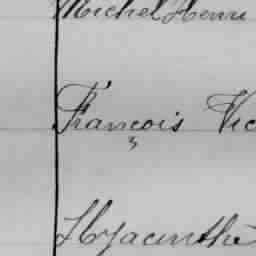 Michel Henri
François Vic
Hyacinthe